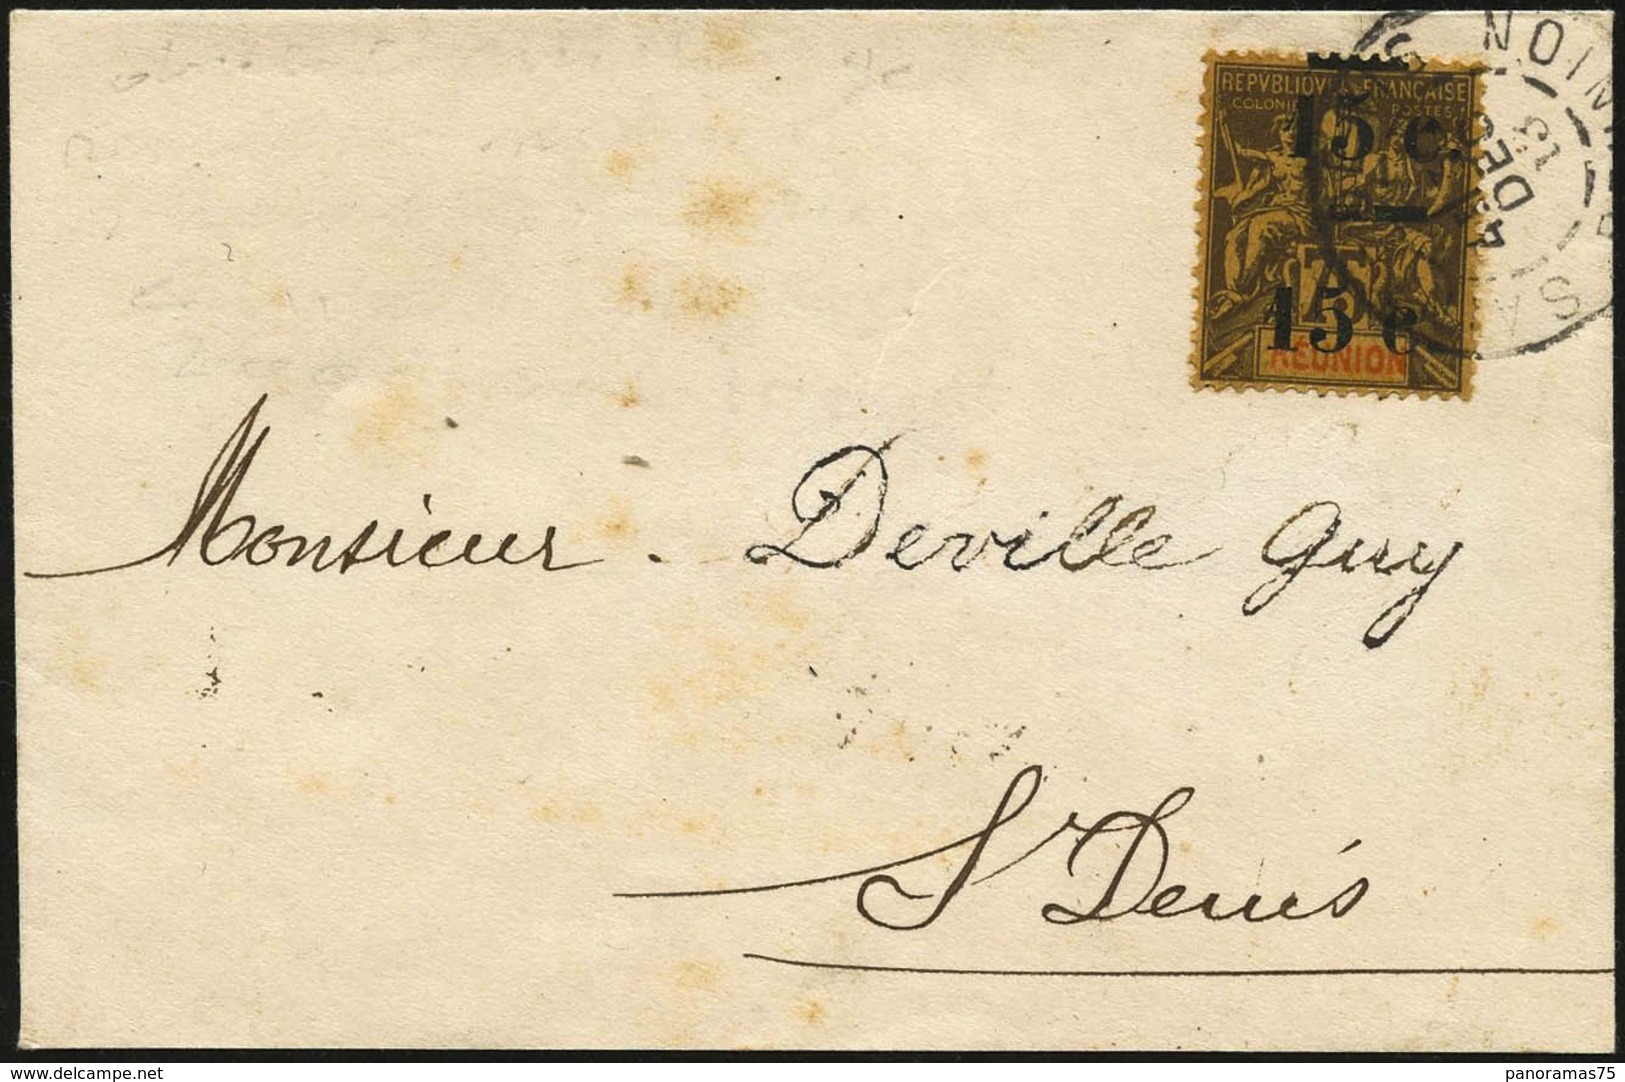 REPVBLIQVE FRANÇAISE
COLONIES POSTES
15 c.
75
15 c
RÉUNION
13
DEC
Monsieur. Deville Guy
St Denis
delcampe.net
panoramas75